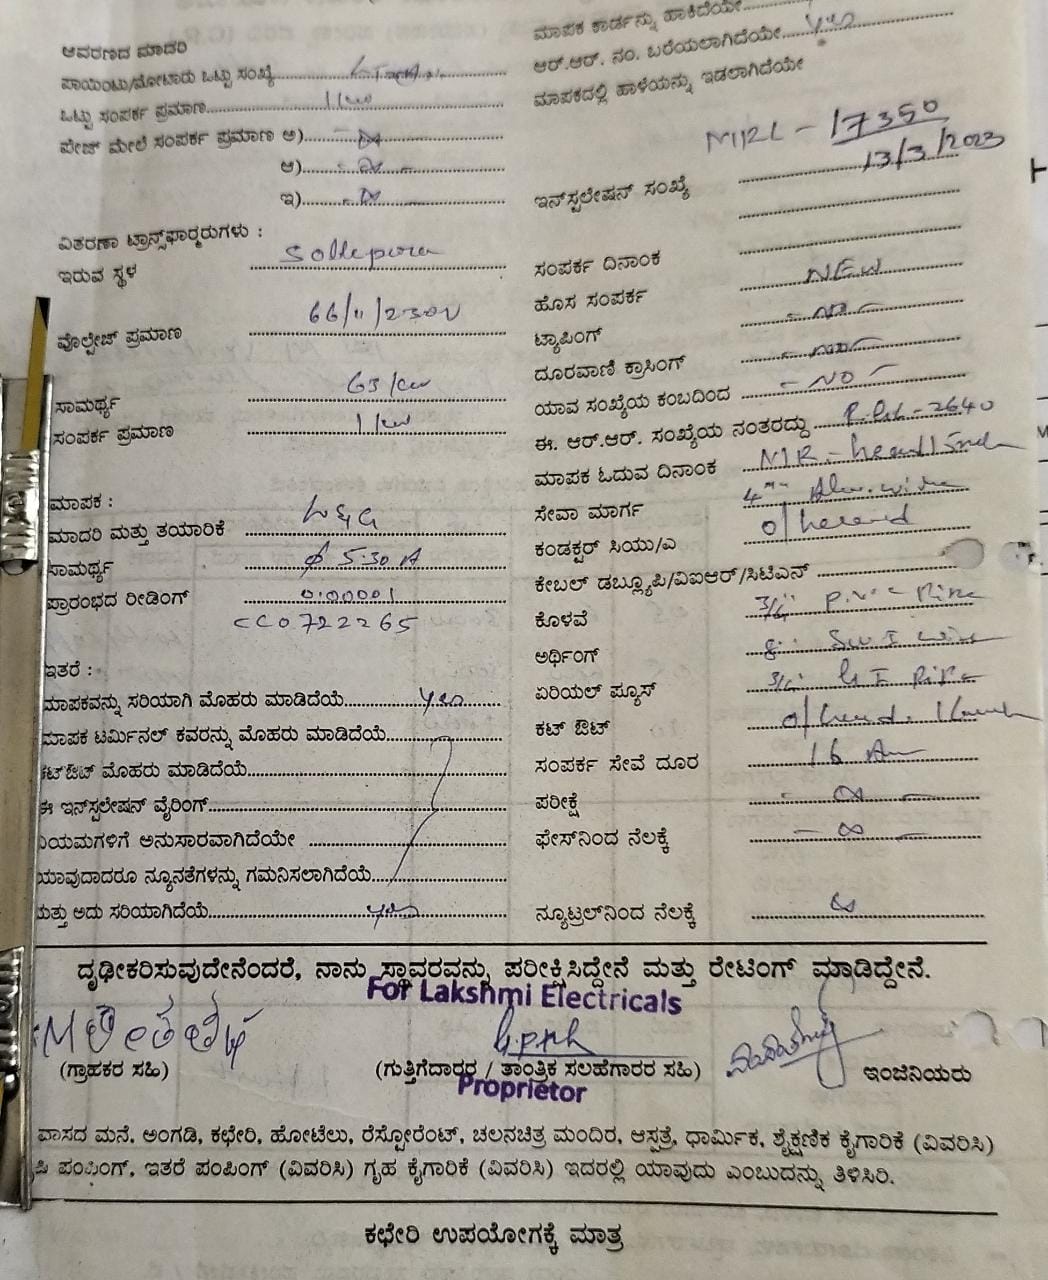 ಆವರಣದ ಮಾದರಿ
ಪಾಯಿಂಟು/ಮೋಟಾರು ಒಟ್ಟು ಸಂಖ್ಯೆ
ಒಟ್ಟು ಸಂಪರ್ಕ ಪ್ರಮಾಣ 1 kw
ಪೇಜ್ ಮೇಲೆ ಸಂಪರ್ಕ ಪ್ರಮಾಣ ಅ)
ಆ)
ಇ)
ವಿತರಣಾ ಟ್ರಾನ್ಸ್‌ಫಾರ್‍ಮರುಗಳು :
ಇರುವ ಸ್ಥಳ
ವೊಲ್ಟೇಜ್ ಪ್ರಮಾಣ 66/11/230V
ಸಾಮರ್ಥ್ಯ 63/kw
ಸಂಪರ್ಕ ಪ್ರಮಾಣ 1 kw
ಮಾಪಕ :
ಮಾದರಿ ಮತ್ತು ತಯಾರಿಕೆ L&G
ಸಾಮರ್ಥ್ಯ 5-30 A
ಪ್ರಾರಂಭದ ರೀಡಿಂಗ್ 0.00001
CC0722265
ಇತರೆ :
ಮಾಪಕವನ್ನು ಸರಿಯಾಗಿ ಮೊಹರು ಮಾಡಿದೆಯೆ yes
ಮಾಪಕ ಟರ್ಮಿನಲ್ ಕವರನ್ನು ಮೊಹರು ಮಾಡಿದೆಯೆ
ಕಟ್‌ಔಟ್ ಮೊಹರು ಮಾಡಿದೆಯೆ
ಈ ಇನ್‌ಸ್ಟಲೇಷನ್ ವೈರಿಂಗ್
ನಿಯಮಗಳಿಗೆ ಅನುಸಾರವಾಗಿದೆಯೇ
ಯಾವುದಾದರೂ ನ್ಯೂನತೆಗಳನ್ನು ಗಮನಿಸಲಾಗಿದೆಯೆ
ಮತ್ತು ಅದು ಸರಿಯಾಗಿದೆಯೆ yes
ಮಾಪಕ ಕಾರ್ಡನ್ನು ಹಾಕಿದೆಯೇ
ಆರ್.ಆರ್. ನಂ. ಬರೆಯಲಾಗಿದೆಯೇ yes
ಮಾಪಕದಲ್ಲಿ ಹಾಳೆಯನ್ನು ಇಡಲಾಗಿದೆಯೇ
17350
13/3/2023
ಇನ್‌ಸ್ಟಲೇಷನ್ ಸಂಖ್ಯೆ
ಸಂಪರ್ಕ ದಿನಾಂಕ
ಹೊಸ ಸಂಪರ್ಕ NEW
ಟ್ಯಾಪಿಂಗ್ - NO -
ದೂರವಾಣಿ ಕ್ರಾಸಿಂಗ್ - NO -
ಯಾವ ಸಂಖ್ಯೆಯ ಕಂಬದಿಂದ - NO -
ಈ. ಆರ್.ಆರ್. ಸಂಖ್ಯೆಯ ನಂತರದ್ದು 2640
ಮಾಪಕ ಓದುವ ದಿನಾಂಕ
ಸೇವಾ ಮಾರ್ಗ
ಕಂಡಕ್ಟರ್ ಸಿಯು/ಎ
ಕೇಬಲ್ ಡಬ್ಲ್ಯೂಪಿ/ವಿಐಆರ್/ಸಿಟಿಎನ್
ಕೊಳವೆ 3/4" P.V.C Pipe
ಅರ್ಥಿಂಗ್
ಏರಿಯಲ್ ಫ್ಯೂಸ್ 3/4" G I Pipe
ಕಟ್ ಔಟ್
ಸಂಪರ್ಕ ಸೇವೆ ದೂರ 16 Am
ಪರೀಕ್ಷೆ
ಫೇಸ್‌ನಿಂದ ನೆಲಕ್ಕೆ
ನ್ಯೂಟ್ರಲ್‌ನಿಂದ ನೆಲಕ್ಕೆ
ದೃಢೀಕರಿಸುವುದೇನೆಂದರೆ, ನಾನು ಸ್ಥಾವರವನ್ನು ಪರೀಕ್ಷಿಸಿದ್ದೇನೆ ಮತ್ತು ರೇಟಿಂಗ್ ಮಾಡಿದ್ದೇನೆ.
For Lakshmi Electricals
(ಗ್ರಾಹಕರ ಸಹಿ) (ಗುತ್ತಿಗೆದಾರರ / ತಾಂತ್ರಿಕ ಸಲಹೆಗಾರರ ಸಹಿ) ಇಂಜಿನಿಯರು
Proprietor
ವಾಸದ ಮನೆ. ಅಂಗಡಿ, ಕಛೇರಿ, ಹೋಟೆಲು, ರೆಸ್ಟೋರೆಂಟ್, ಚಲನಚಿತ್ರ ಮಂದಿರ, ಆಸ್ಪತ್ರೆ, ಧಾರ್ಮಿಕ, ಶೈಕ್ಷಣಿಕ ಕೈಗಾರಿಕೆ (ವಿವರಿಸಿ)
ಪಂಪಿಂಗ್, ಇತರೆ ಪಂಪಿಂಗ್ (ವಿವರಿಸಿ) ಗೃಹ ಕೈಗಾರಿಕೆ (ವಿವರಿಸಿ) ಇದರಲ್ಲಿ ಯಾವುದು ಎಂಬುದನ್ನು ತಿಳಿಸಿರಿ.
ಕಛೇರಿ ಉಪಯೋಗಕ್ಕೆ ಮಾತ್ರ